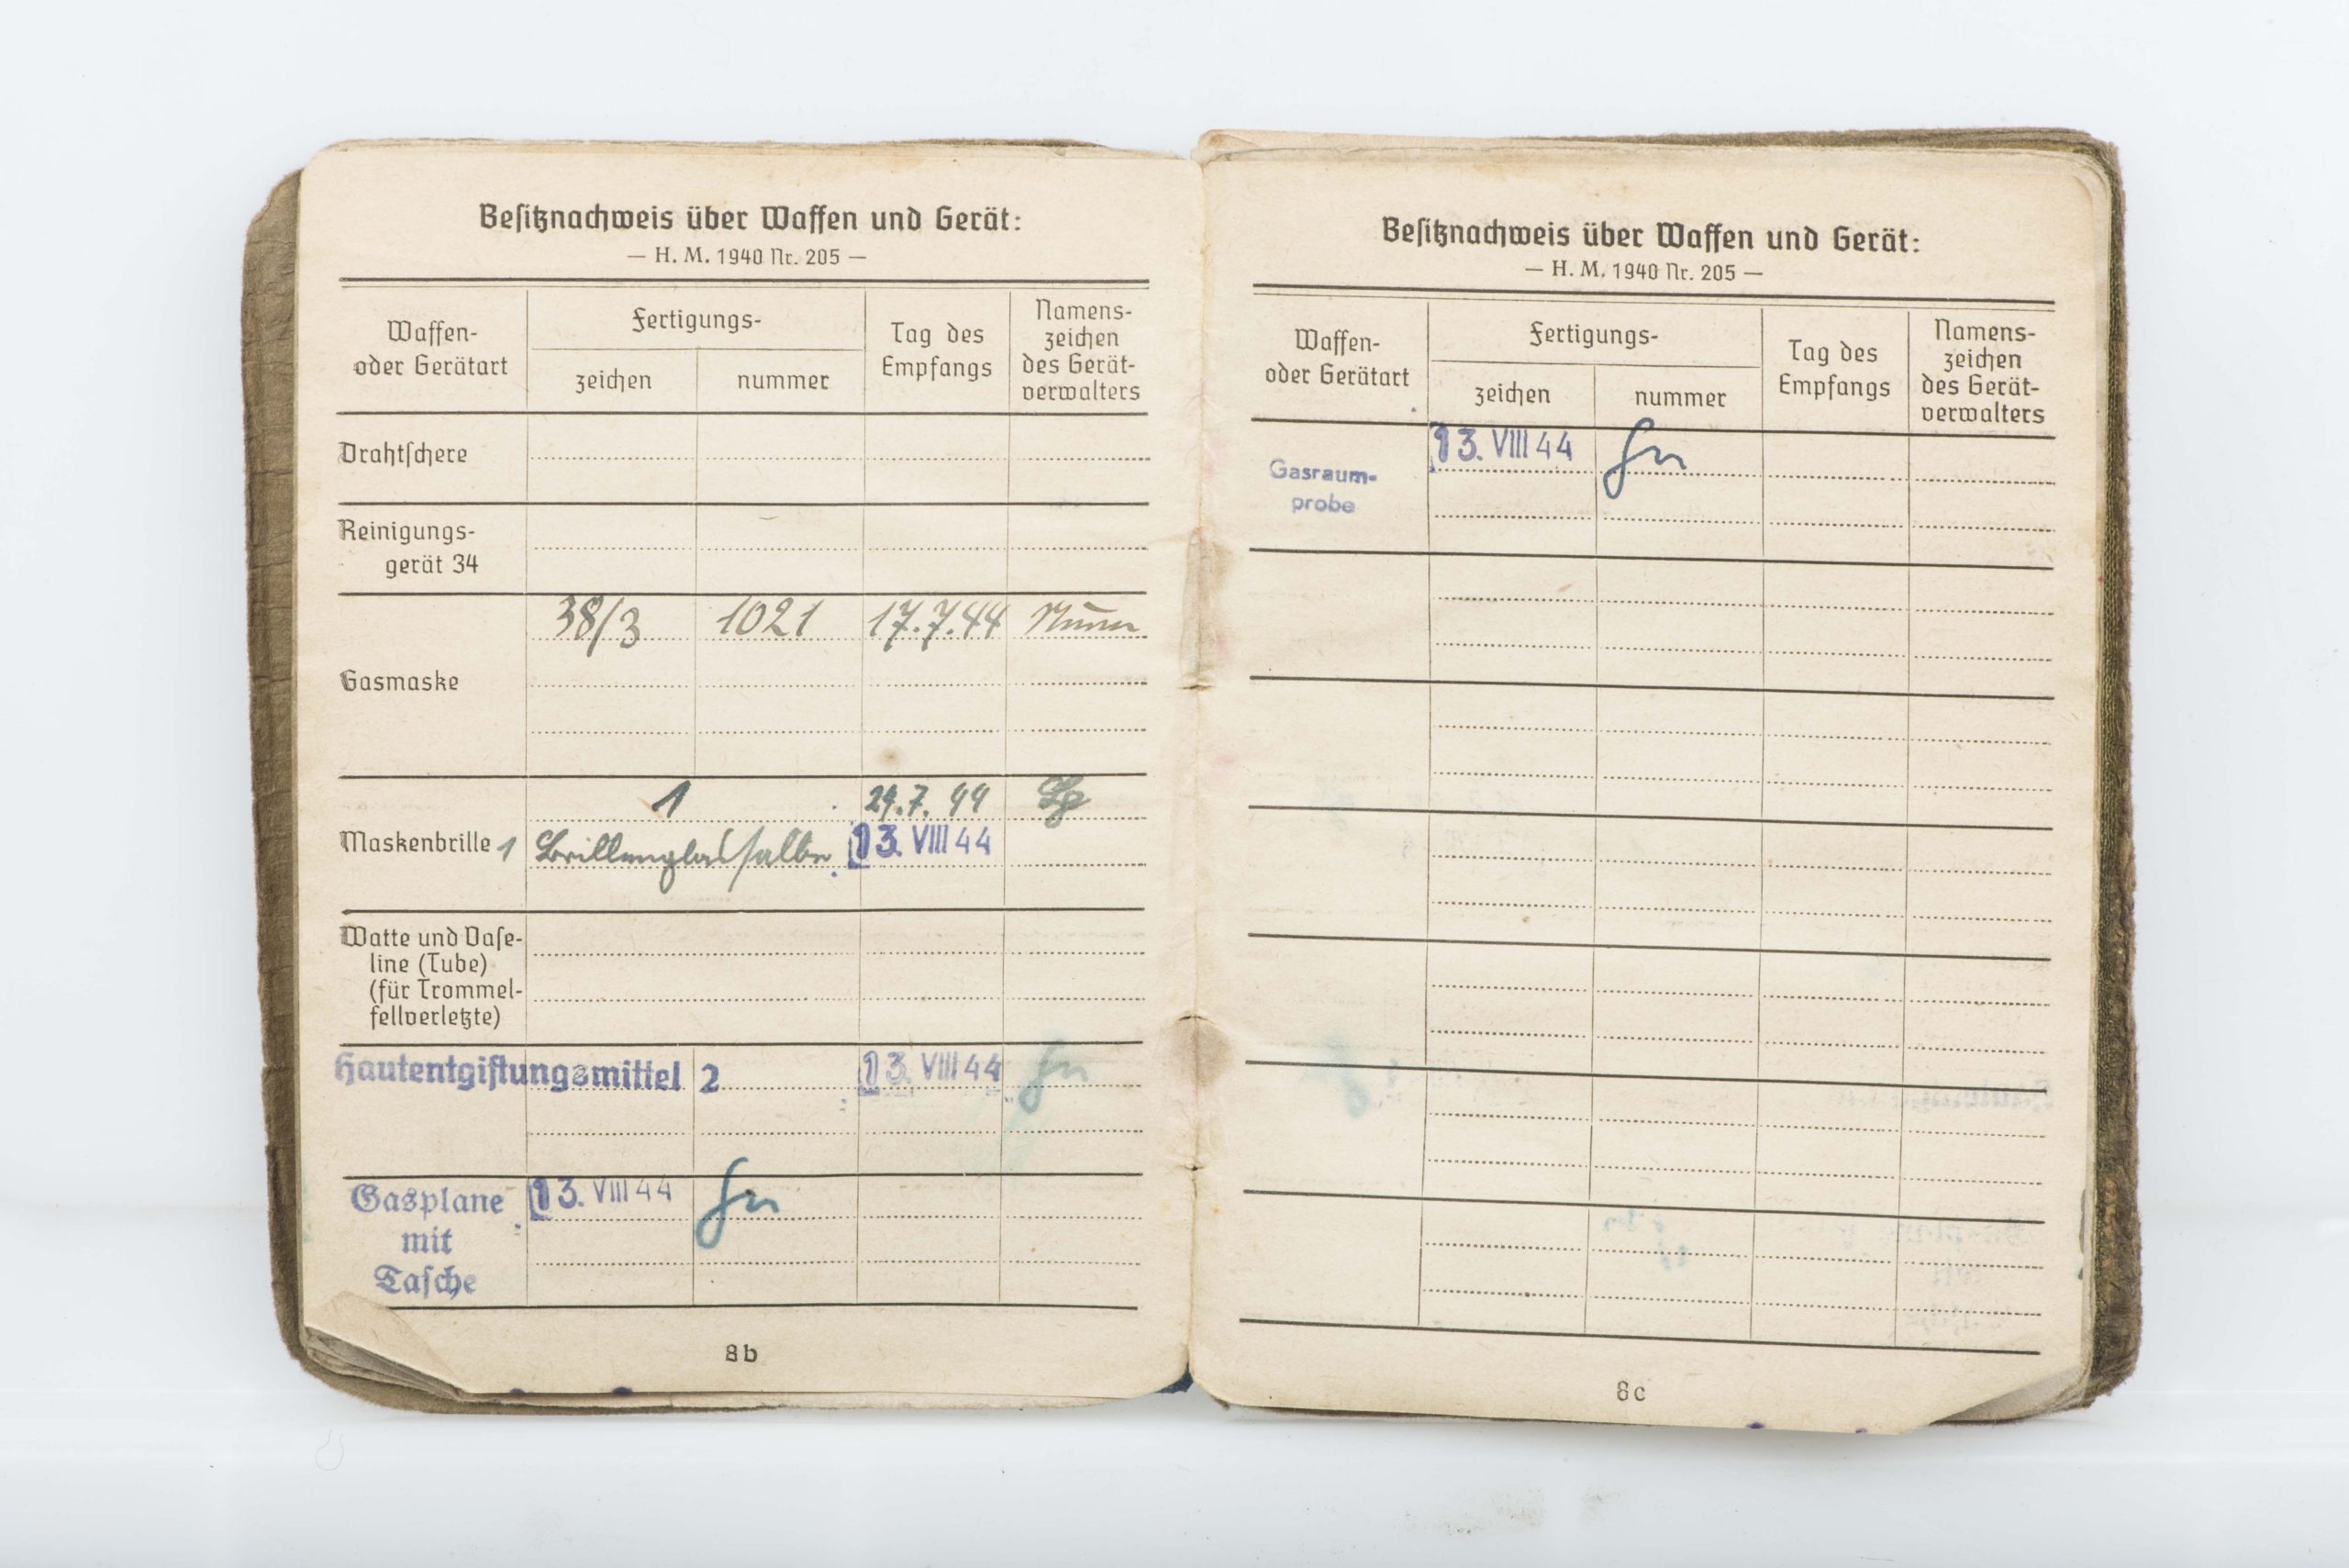 Besitznachweis über Waffen und Gerät:
— H. M. 1940 Nr. 205 —
Waffen-
oder Gerätart
Fertigungs-
zeichen
nummer
Tag des
Empfangs
Namens-
zeichen
des Gerät-
verwalters
Drahtschere
Reinigungs-
gerät 34
Gasmaske
38/3 1021 17.7.44
Maskenbrille
1 29.7.44
1 Brillenglassalbe 13. VIII 44
Watte und Vase-
line (Tube)
(für Trommel-
fellverletzte)
Hautentgiftungsmittel 2 13. VIII 44
Gasplane
mit
Tasche
13. VIII 44
8b
Besitznachweis über Waffen und Gerät:
— H. M. 1940 Nr. 205 —
Waffen-
oder Gerätart
Fertigungs-
zeichen
nummer
Tag des
Empfangs
Namens-
zeichen
des Gerät-
verwalters
Gasraum-
probe
13. VIII 44
8c